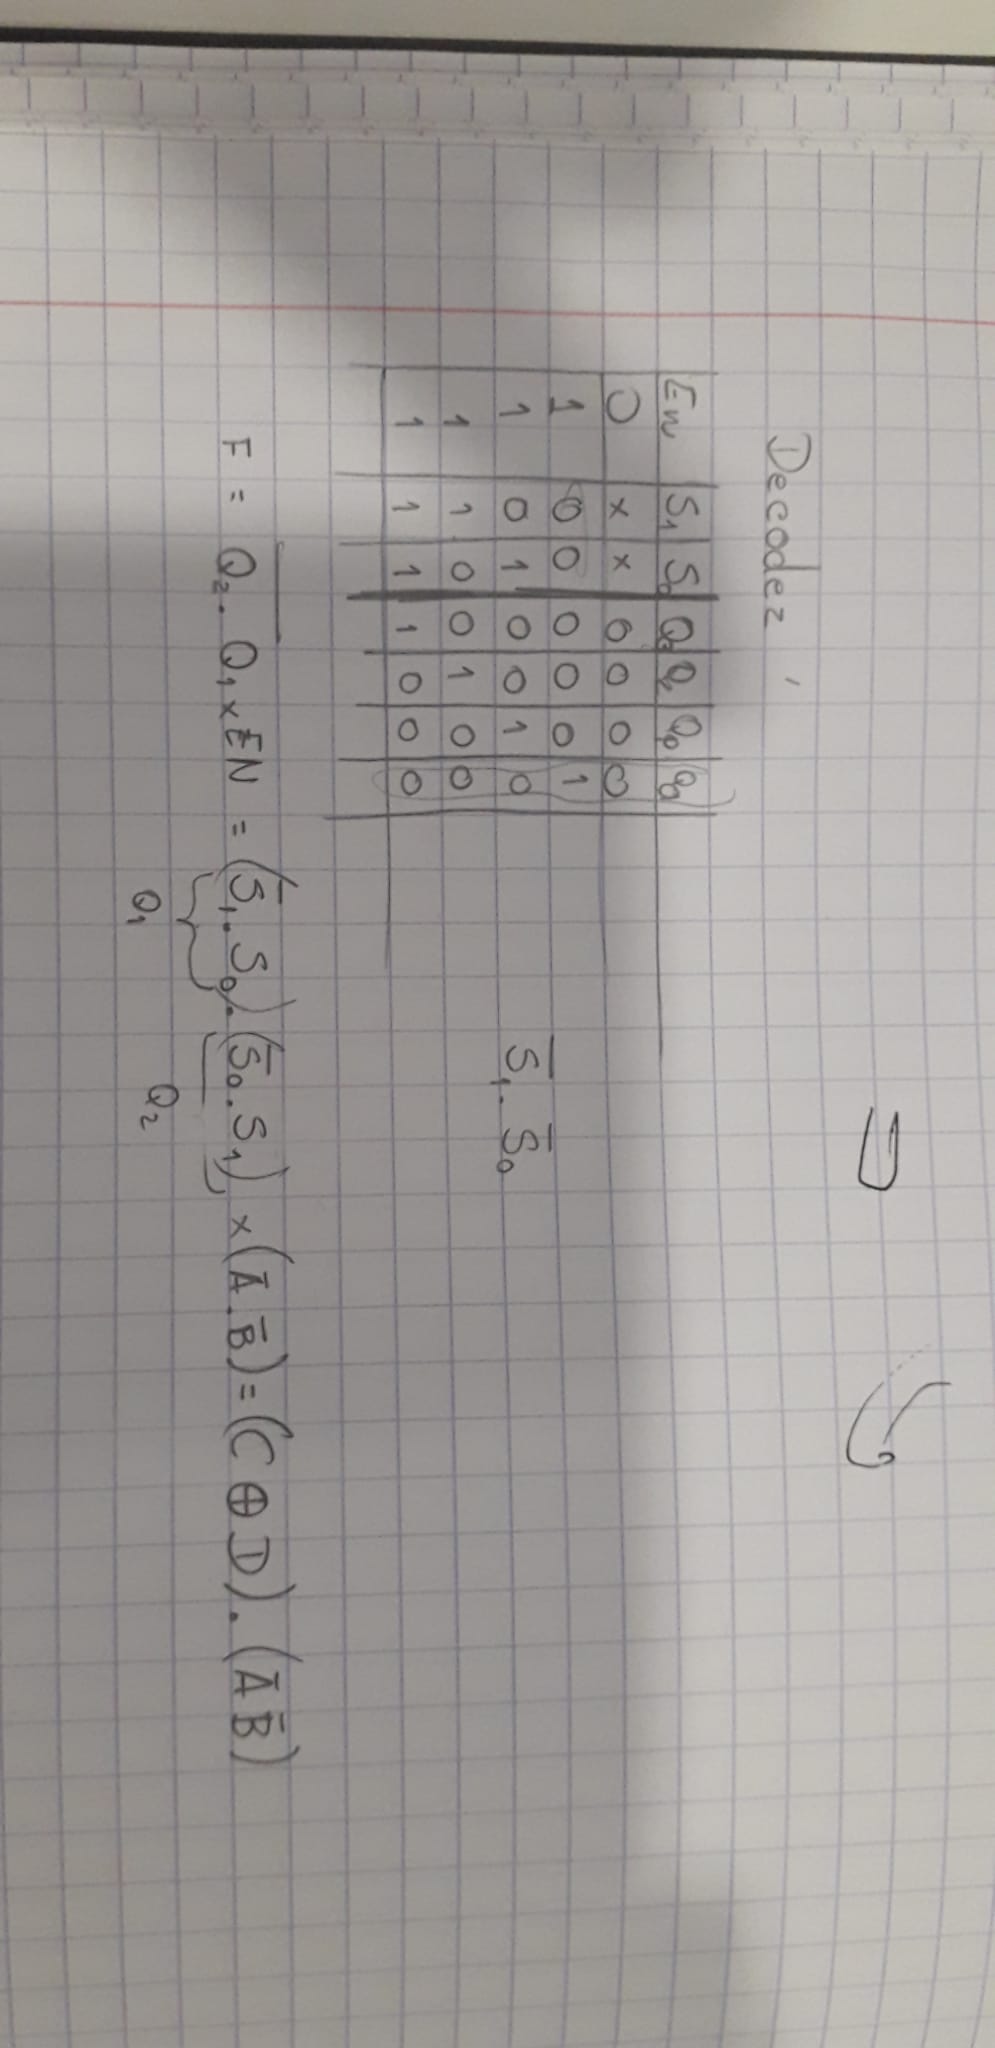 Decoder
En S₁ S₀ Q₃ Q₂ Q₀ Q₀
0 x x 0 0 0 0
1 0 0 0 0 0 1
1 0 1 0 0 1 0
1 1 0 0 1 0 0
1 1 1 1 0 0 0
S̅₁. S̅₀
F = \overline{Q₂. Q₁} x EN = (S̅₁. S₀). (S̅₀. S₁) x (A̅ . B̅) = (C ⊕ D). (A̅ B̅)
Q₁ Q₂